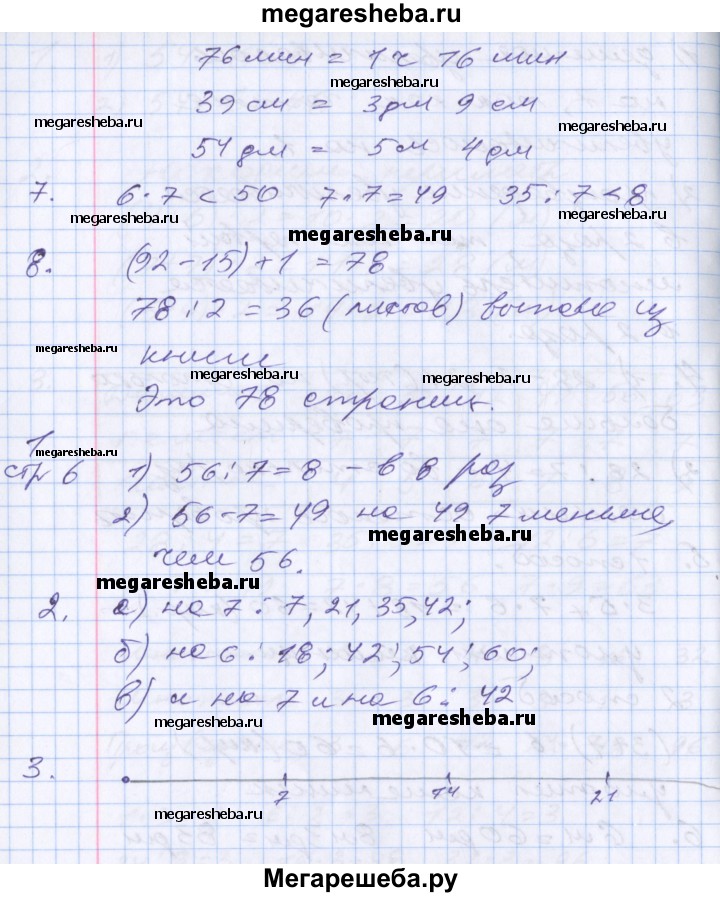 megaresheba.ru
76 мин = 1 ч 16 мин
megaresheba.ru
39 см = 3 дм 9 см
megaresheba.ru megaresheba.ru
54 дм = 5 м 4 дм
7. 6 · 7 < 50 7 · 7 = 49 35 : 7 < 8
megaresheba.ru megaresheba.ru
megaresheba.ru
8. (92 - 15) + 1 = 78
78 : 2 = 36 (листов) выпало из
megaresheba.ru
книги
megaresheba.ru megaresheba.ru
Это 78 страниц.
1.
megaresheba.ru
стр 6 1) 56 : 7 = 8 - в 8 раз
2) 56 - 7 = 49 на 49 7 меньше,
megaresheba.ru
чем 56.
megaresheba.ru
2. а) на 7 : 7, 21, 35, 42;
б) на 6 : 18; 42; 54; 60;
в) и на 7 и на 6 : 42
megaresheba.ru megaresheba.ru
3.
7 14 21
megaresheba.ru
Мегарешеба.ру